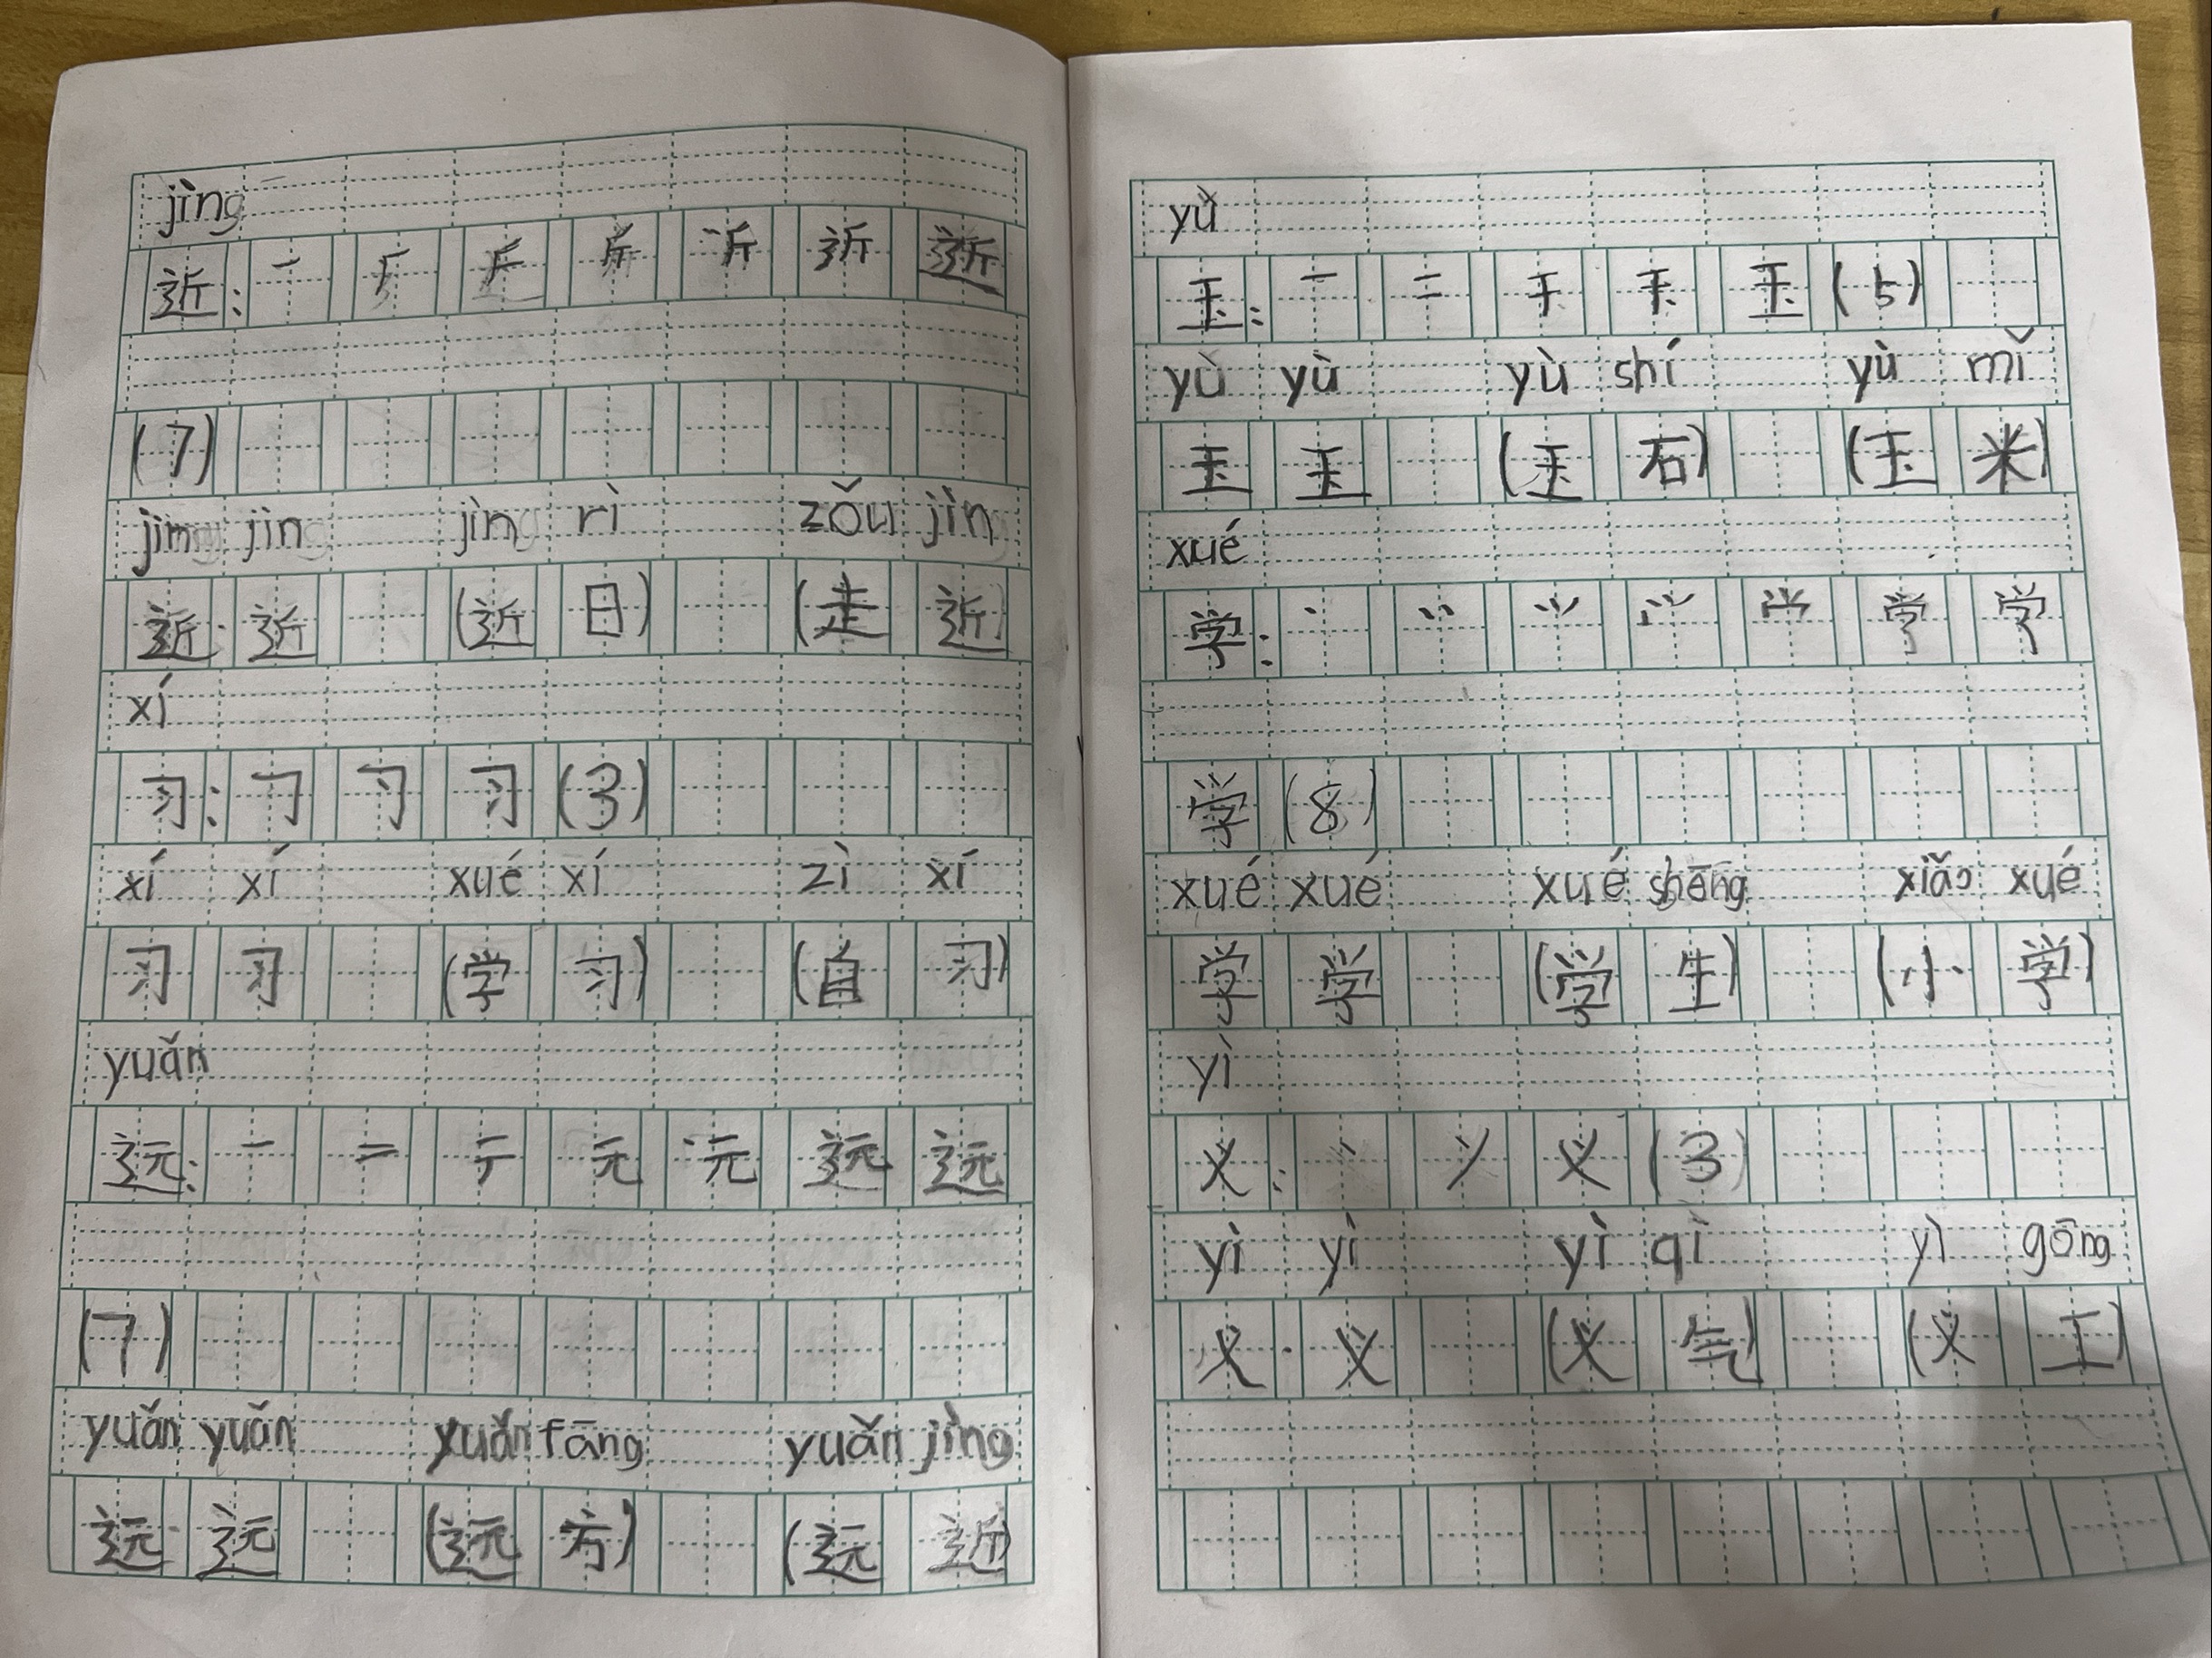 jìng
近：一 厂 斤 斤 近 近
(7)
jìn jìn jìn rì zǒu jìn
近 近 (近 日) (走 近)
xí
习： 习 (3)
xí xí xué xí zì xí
习 习 (学 习) (自 习)
yuǎn
远：一 二 テ 元 元 远 远
(7)
yuǎn yuǎn yuǎn fāng yuǎn jìng
远 远 (远 方) (远 近)
yǔ
玉：一 二 王 玉 (5)
yù yù yù shí yù mǐ
玉 玉 (玉 石) (玉 米)
xué
学：丶 学 学
学 (8)
xué xué xué shēng xiǎo xué
学 学 (学 生) (小 学)
yì
义：丶 丷 义 (3)
yì yì yì qì yì gōng
义 义 (义 气) (义 工)